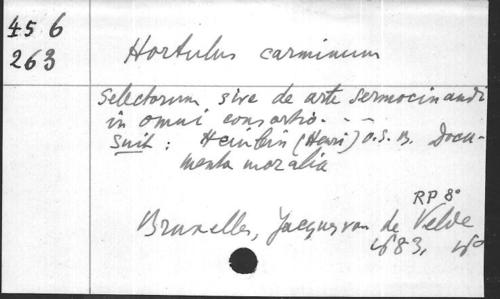 45 6
263
Hortulus carminum
Selectorum sive de arte sermocinandi
in omni consortio. - -
Suit : (Henri) O.S.B. Docu-
menta moralia
RP 8°
Bruxelles, Jacques van de Velde
1683,